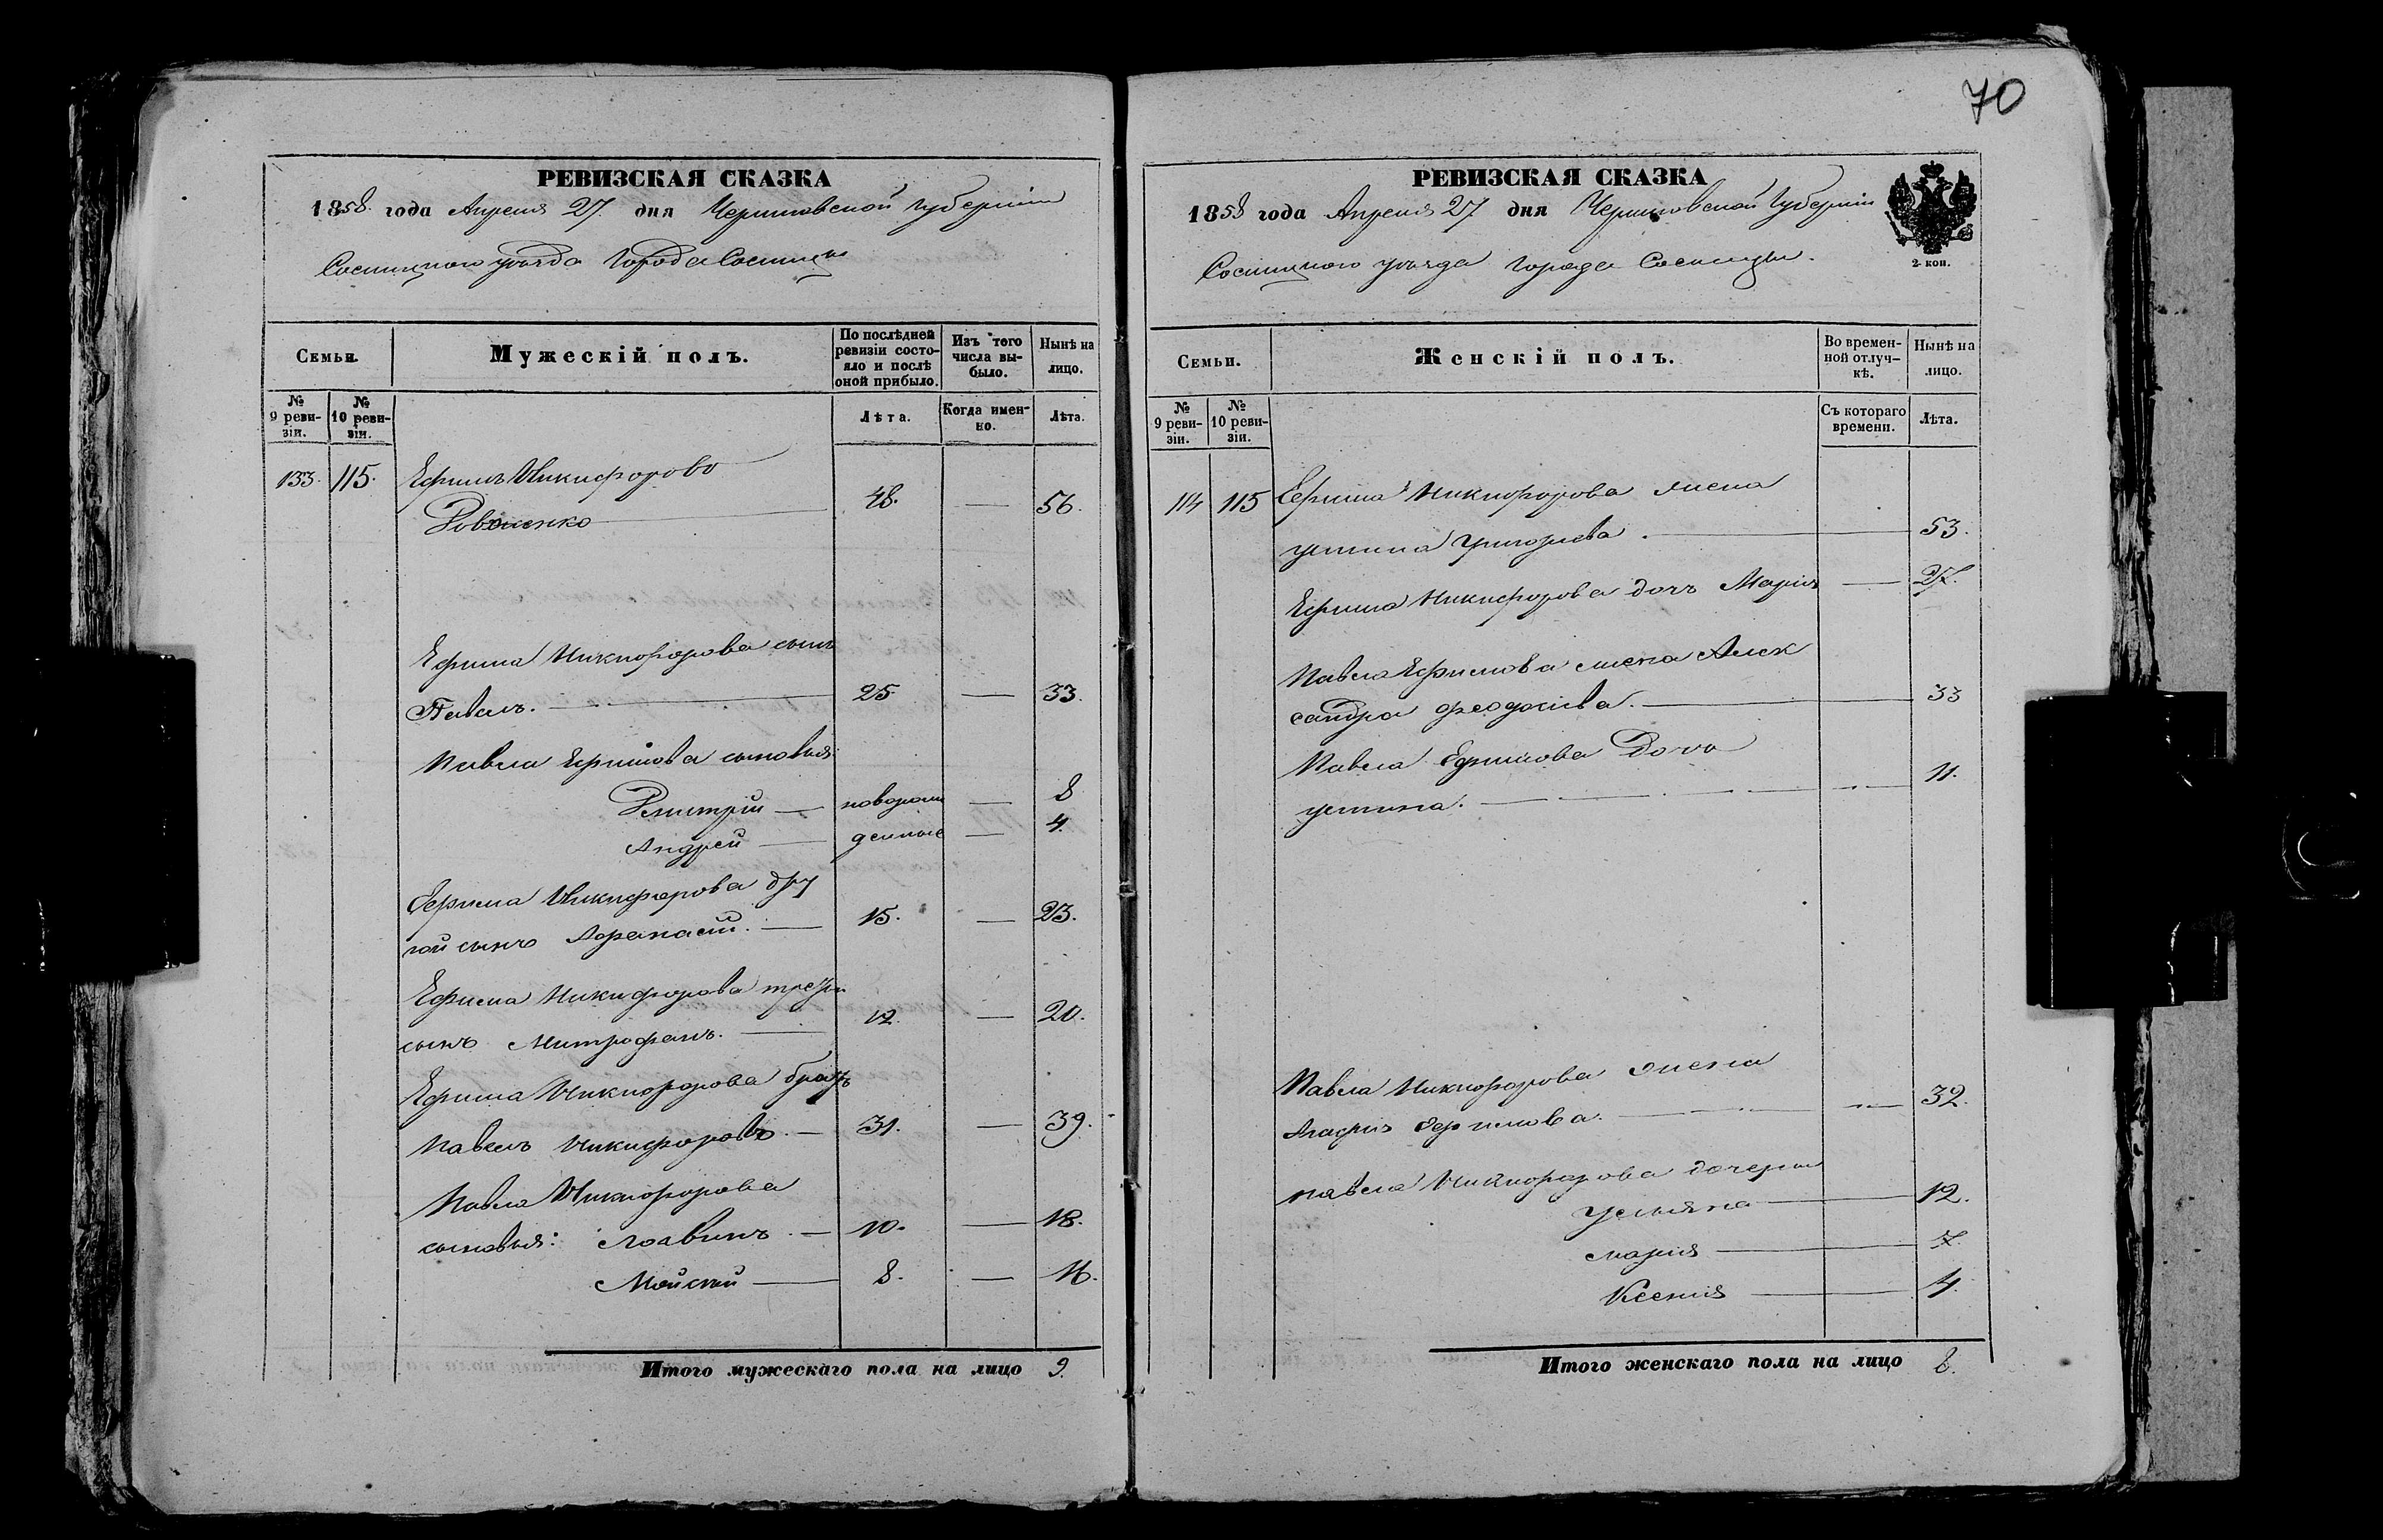 70
РЕВИЗСКАЯ СКАЗКА
1858 года Апреля 27 дня Черниговской губернии
Сосницкого уѣзда города Сосницы
Семьи.
Мужескій полъ.
По послѣдней ревизіи состояло и послѣ оной прибыло.
Изъ того числа выбыло.
Нынѣ на лицо.
№ 9 ревизіи.
№ 10 ревизіи.
Лѣта.
Когда именно.
Лѣта.
133. 115. Ефимъ Никифоровъ
48. — 56.
Ефима Никифорова сынъ
Павелъ. — 25 — 33.
Павла Ефимова сыновья:
Дмитрій — новорож — 8
Андрей — денные — 4.
Ефима Никифорова дру
гой сынъ Афанасій. — 15. — 23.
Ефима Никифорова третій
сынъ Митрофанъ. — 12. — 20.
Ефима Никифорова братъ
Павелъ Никифоровъ. — 31. — 39.
Павла Никифорова
сыновья: — 10. — 18.
Мойсей — 8. — 16.
Итого мужескаго пола на лицо 9.
РЕВИЗСКАЯ СКАЗКА
1858 года Апреля 27 дня Черниговской Губерніи
Сосницкого уѣзда города Сосницы.
2 коп.
Семьи.
Женскій полъ.
Во временной отлучкѣ.
Нынѣ на лицо.
№ 9 ревизіи.
№ 10 ревизіи.
Съ котораго времени.
Лѣта.
114 115 Ефима Никифорова жена
устина Григорьева. — 53.
Ефима Никифорова дочь Марія — 27.
Павла Ефимова жена Алек
сандра феодосіева. — 33
Павла Ефимова Дочь
устина. — 11.
Павла Никифорова жена
Агафія Ефимова. — 32.
павла Никифорова дочери
Ульяна — 12.
мария — 7.
Ксения — 4.
Итого женскаго пола на лицо 8.